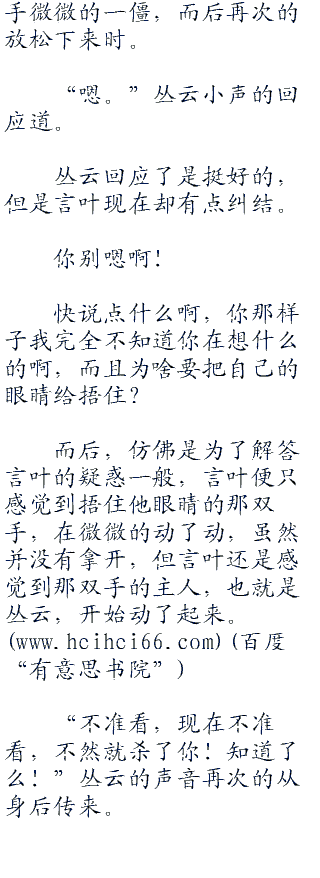 手微微的一僵，而后再次的
放松下来时。
“嗯。”丛云小声的回
应道。
丛云回应了是挺好的，
但是言叶现在却有点纠结。
你别嗯啊！
快说点什么啊，你那样
子我完全不知道你在想什么
的啊，而且为啥要把自己的
眼睛给捂住？
而后，仿佛是为了解答
言叶的疑惑一般，言叶便只
感觉到捂住他眼睛的那双
手，在微微的动了动，虽然
并没有拿开，但言叶还是感
觉到那双手的主人，也就是
丛云，开始动了起来。
(www.hcihci66.com)(百度
“有意思书院”)
“不准看，现在不准
看，不然就杀了你！知道了
么！”丛云的声音再次的从
身后传来。